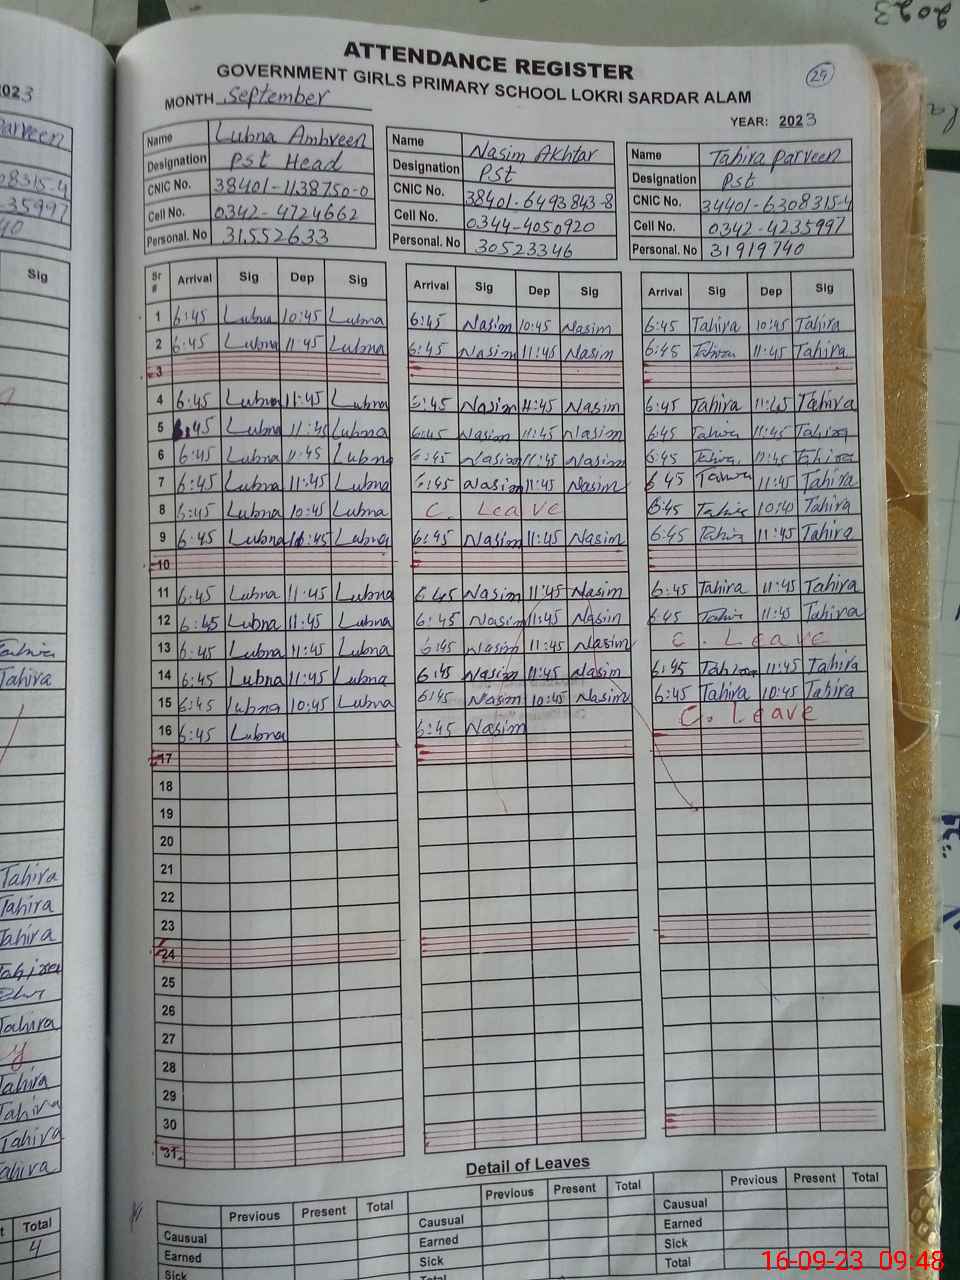 2023
ATTENDANCE REGISTER
29
GOVERNMENT GIRLS PRIMARY SCHOOL LOKRI SARDAR ALAM
MONTH September
YEAR: 2023
Name Lubna Ambreen Name Nasim Akhtar Name Tahira Parveen
Designation Pst Head Designation Pst Designation Pst
CNIC No. 38401-1138750-0 CNIC No. 38401-6493843-8 CNIC No. 34401-6308315-4
Cell No. 0342-4724662 Cell No. 0344-4050920 Cell No. 0342-4235997
Personal. No 31552633 Personal. No 30523346 Personal. No 31919740
Sr # Arrival Sig Dep Sig Arrival Sig Dep Sig Arrival Sig Dep Sig
1 6:45 Lubna 10:45 Lubna 6:45 Nasim 10:45 Nasim 6:45 Tahira 10:45 Tahira
2 6:45 Lubna 11:45 Lubna 6:45 Nasim 11:45 Nasim 6:45 Tahira 11:45 Tahira
3
4 6:45 Lubna 11:45 Lubna 6:45 Nasim 11:45 Nasim 6:45 Tahira 11:45 Tahira
5 6:45 Lubna 11:45 Lubna 6:45 Nasim 11:45 Nasim 6:45 Tahira 11:45 Tahira
6 6:45 Lubna 11:45 Lubna 6:45 Nasim 11:45 Nasim 6:45 Tahira 11:45 Tahira
7 6:45 Lubna 11:45 Lubna 6:45 Nasim 11:45 Nasim 6:45 Tahira 11:45 Tahira
8 6:45 Lubna 10:45 Lubna C. Leave 6:45 Tahira 10:40 Tahira
9 6:45 Lubna 11:45 Lubna 6:45 Nasim 11:45 Nasim 6:45 Tahira 11:45 Tahira
10
11 6:45 Lubna 11:45 Lubna 6:45 Nasim 11:45 Nasim 6:45 Tahira 11:45 Tahira
12 6:45 Lubna 11:45 Lubna 6:45 Nasim 11:45 Nasim 6:45 Tahira 11:45 Tahira
13 6:45 Lubna 11:45 Lubna 6:45 Nasim 11:45 Nasim C. Leave
14 6:45 Lubna 11:45 Lubna 6:45 Nasim 11:45 Nasim 6:45 Tahira 11:45 Tahira
15 6:45 Lubna 10:45 Lubna 6:45 Nasim 10:45 Nasim 6:45 Tahira 10:45 Tahira
16 6:45 Lubna 6:45 Nasim C. Leave
17
18
19
20
21
22
23
24
25
26
27
28
29
30
31
Detail of Leaves
Previous Present Total Previous Present Total Previous Present Total
Causual Causual Causual
Earned Earned Earned
Sick Sick Sick
Total Total
Sig
Tahira
Tahira
Tahira
Tahira
Tahira
Tahira
Tahira
Tahira
Tahira
Total
4
16-09-23 09:48